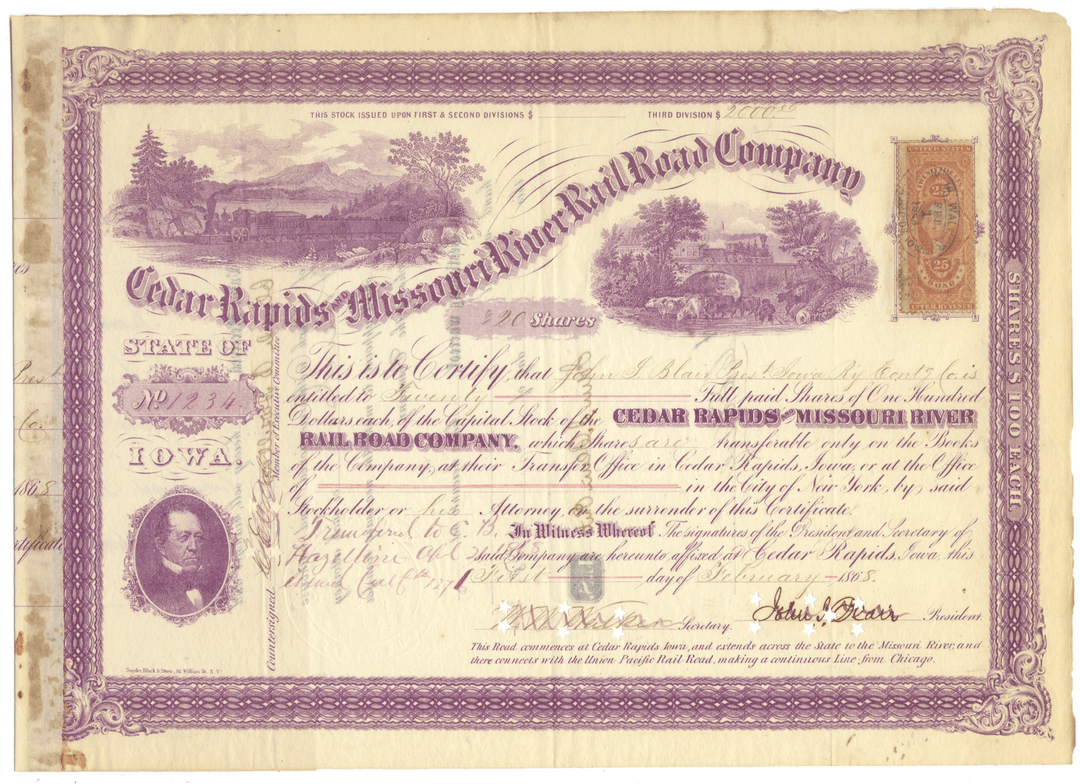 THIS STOCK ISSUED UPON FIRST & SECOND DIVISIONS $ THIRD DIVISION $ 2000.00
Cedar Rapids and Missouri River Rail Road Company
UNITED STATES
25 25
25
BOND
INTER. REVENUE
20 Shares
STATE OF
No 1234.
IOWA.
This is to Certify, that John I Blair Prest. Iowa Ry Cont'g Co. is
entitled to Twenty Full paid Shares of One Hundred
Dollars each, of the Capital Stock of the CEDAR RAPIDS AND MISSOURI RIVER
RAIL ROAD COMPANY, which Shares are transferable only on the Books
of the Company, at their Transfer Office in Cedar Rapids, Iowa, or at the Office
of in the City of New York, by said
Stockholder or his Attorney on the surrender of this Certificate.
In Witness Whereof The signatures of the President and Secretary of
said Company are hereunto affixed at Cedar Rapids, Iowa, this
First day of February 1868.
Transferred to C. B.
Secretary. President.
This Road commences at Cedar Rapids Iowa, and extends across the State to the Missouri River, and
there connects with the Union Pacific Rail Road, making a continuous Line from Chicago.
Countersigned.
Member of Executive Committee
SHARES $100 EACH.
Snyder, Black & Sturn, 92 William St. N.Y.
1868